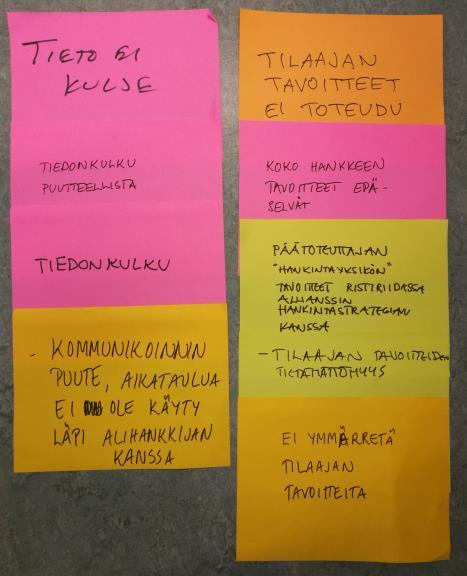 TIETO EI
KULJE
TIEDONKULKU
PUUTTEELLISTA
TIEDONKULKU
- KOMMUNIKOINNIN
PUUTE, AIKATAULUA
EI OLE KÄYTY
LÄPI ALIHANKKIJAN
KANSSA
TILAAJAN
TAVOITTEET
EI TOTEUDU
KOKO HANKKEEN
TAVOITTEET EPÄ-
SELVÄT
PÄÄTOTEUTTAJAN
"HANKINTAYKSIKÖN"
TAVOITTEET RISTIRIIDASSA
ALLIANSSIN
HANKINTASTRATEGIAN
KANSSA
- TILAAJAN TAVOITTEIDEN
TIETÄMÄTTÖMYYS
EI YMMÄRRETÄ
TILAAJAN
TAVOITEITA